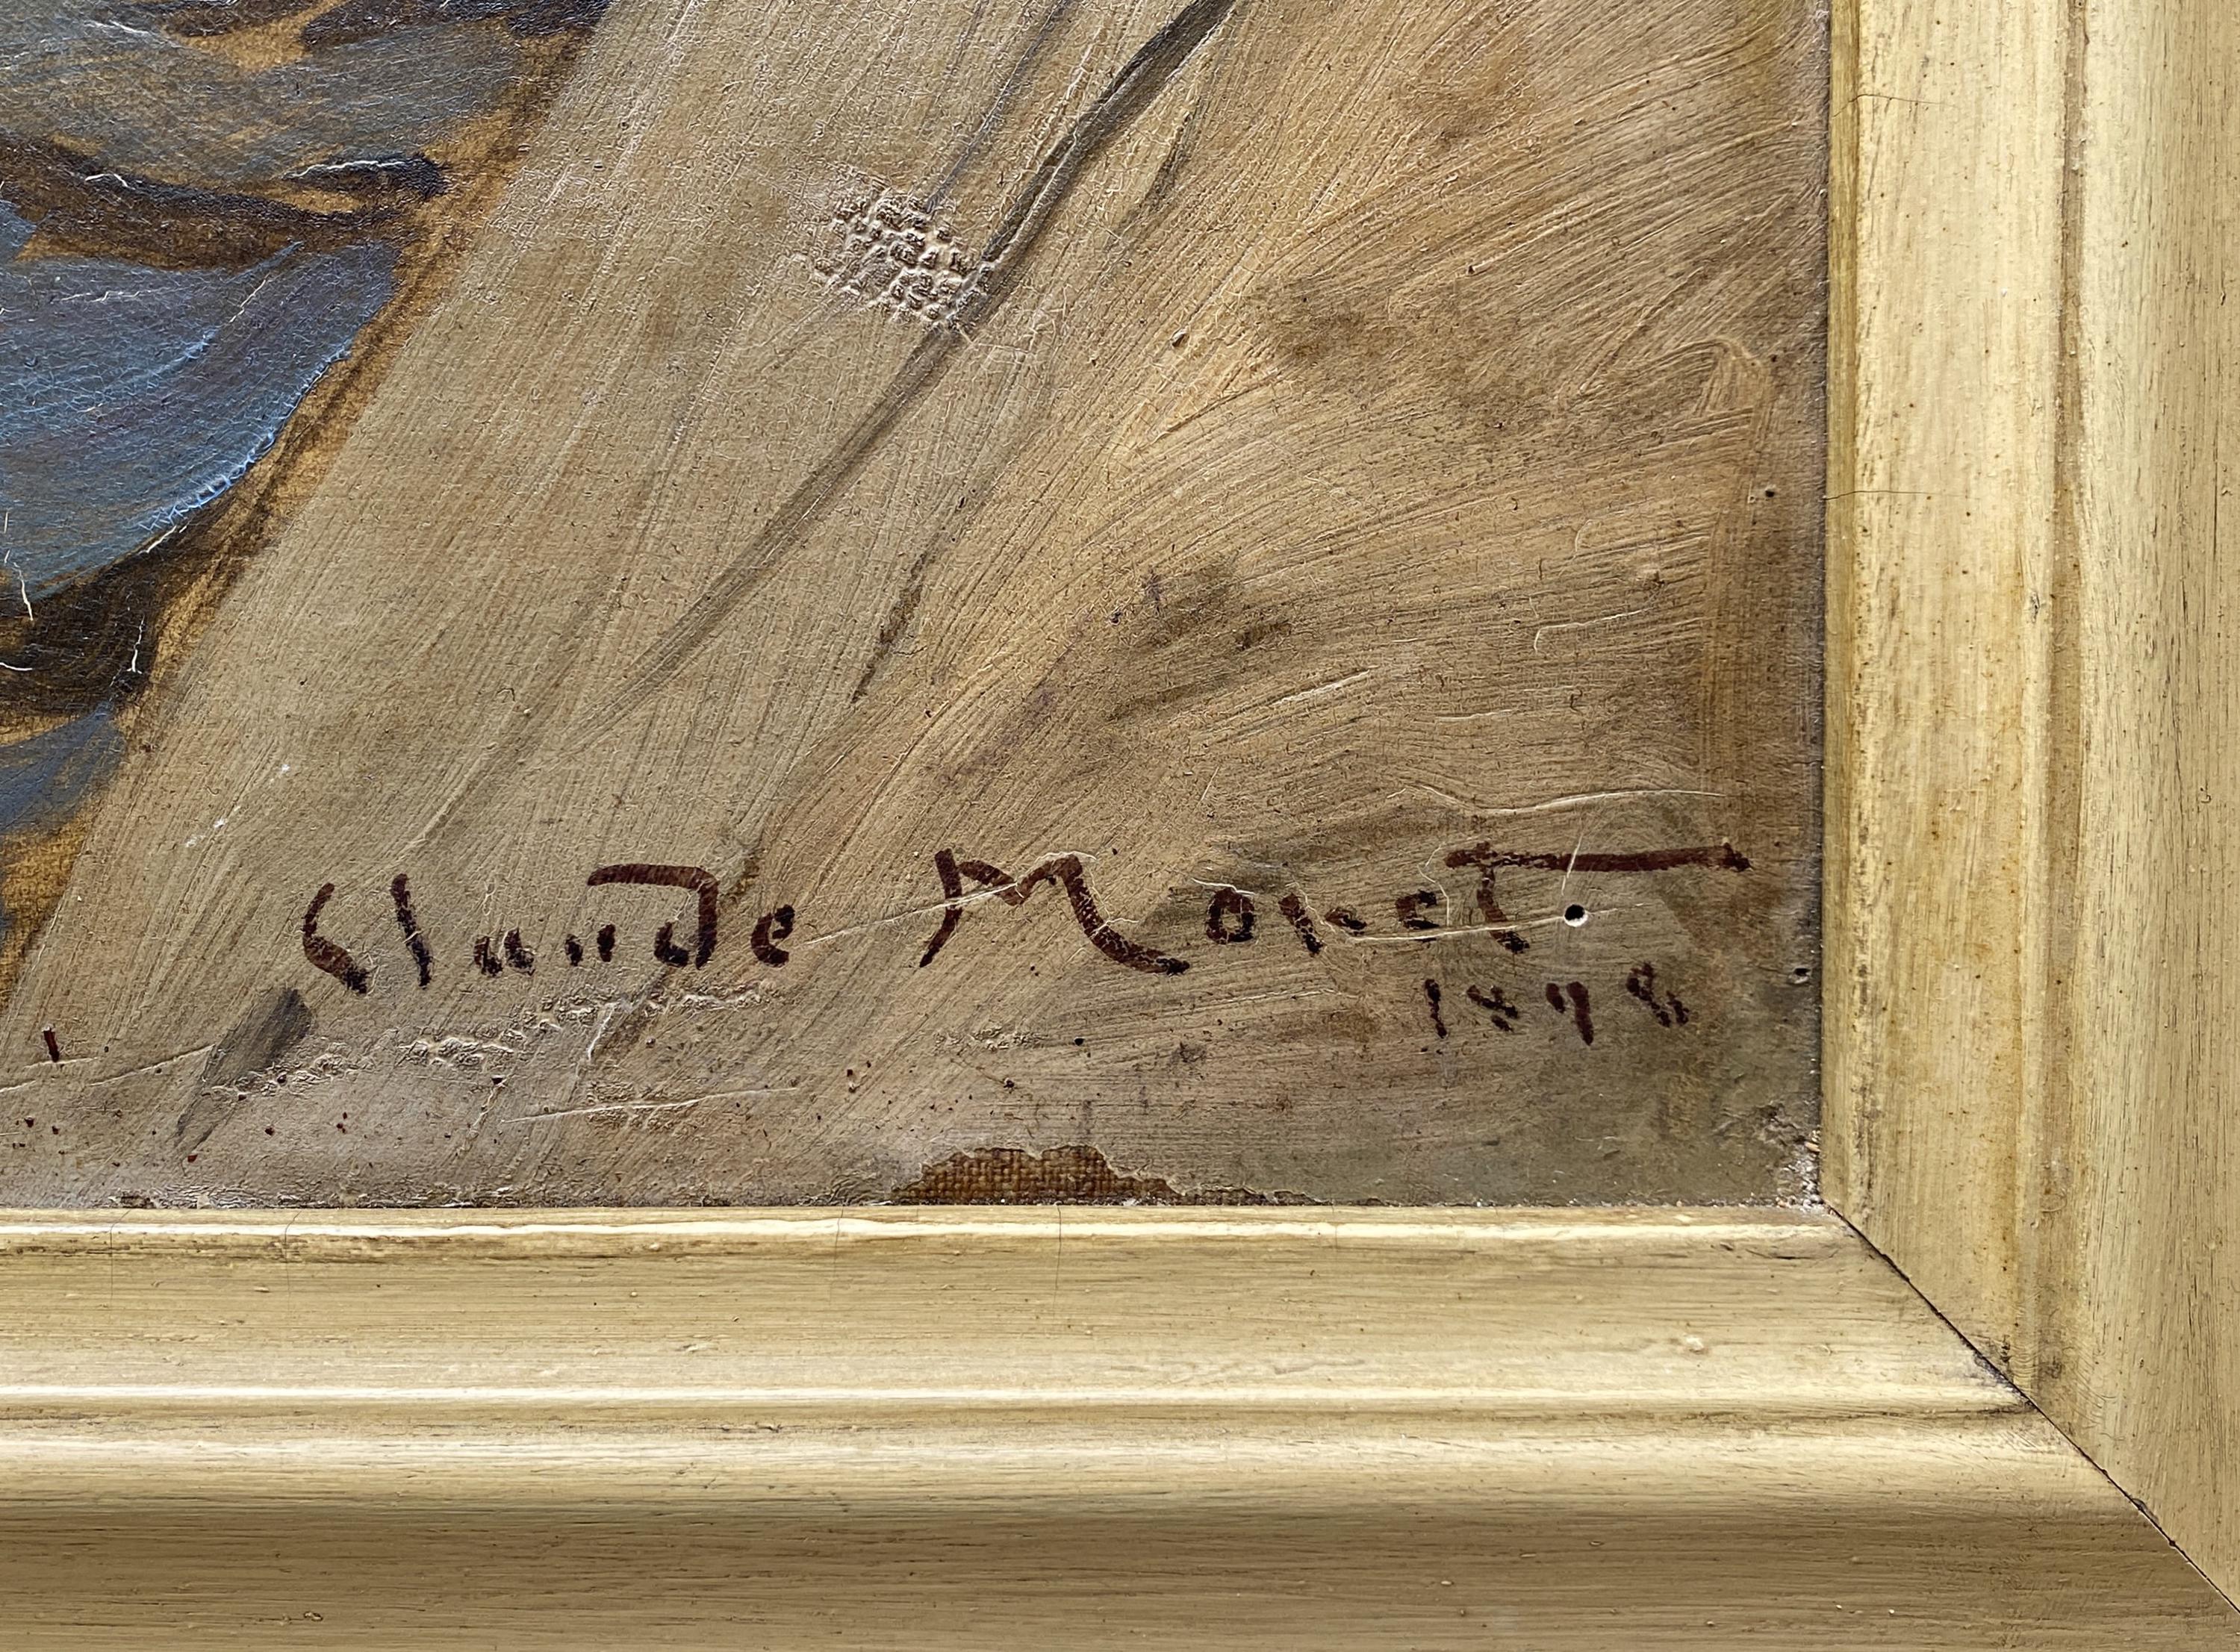 Claude Monet
1878